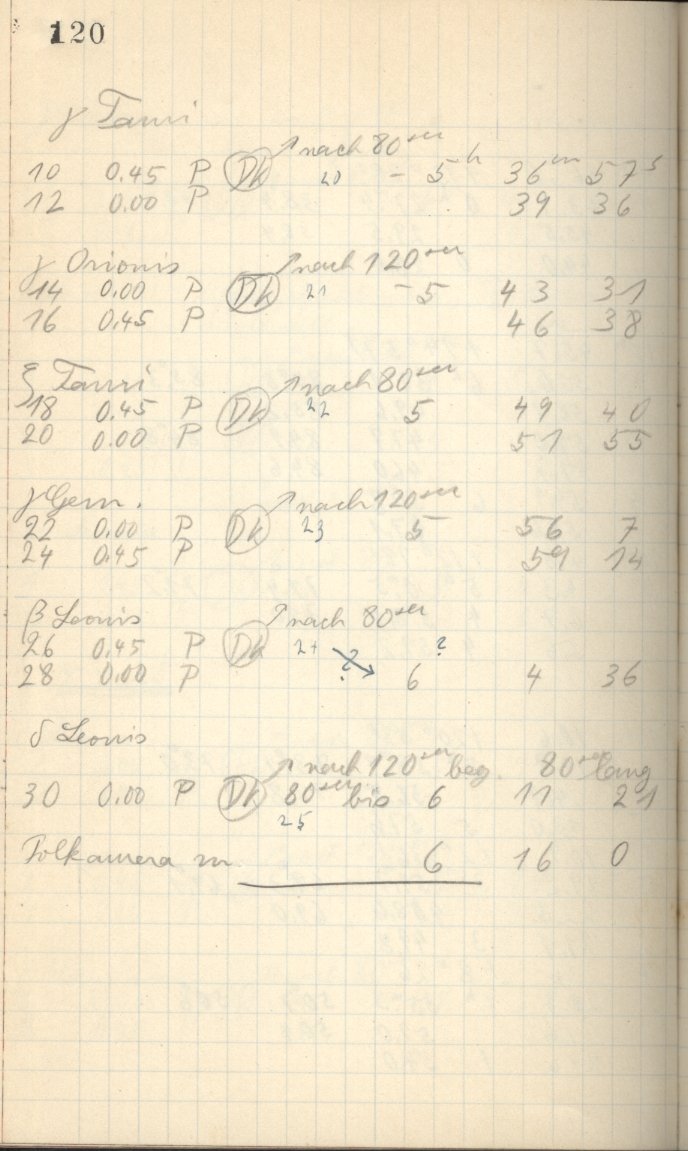 120
γ Tauri
nach 80 sec
10 0.45 P Dk 20 - 5h 36m 57s
12 0.00 P 39 36
γ Orionis nach 120 sec
14 0.00 P Dk 21 - 5 43 31
16 0.45 P 46 38
ξ Tauri nach 80 sec
18 0.45 P Dk 22 5 49 40
20 0.00 P 51 55
γ Gem. nach 120 sec
22 0.00 P Dk 23 5 56 7
24 0.45 P 59 14
β Leonis nach 80 sec
26 0.45 P Dk 24 ? ?
28 0.00 P ? 6 4 36
δ Leonis
nach 120 sec beg. 80 sec lang
30 0.00 P Dk 80 sec bis 6 11 21
25
Polkamera 6 16 0